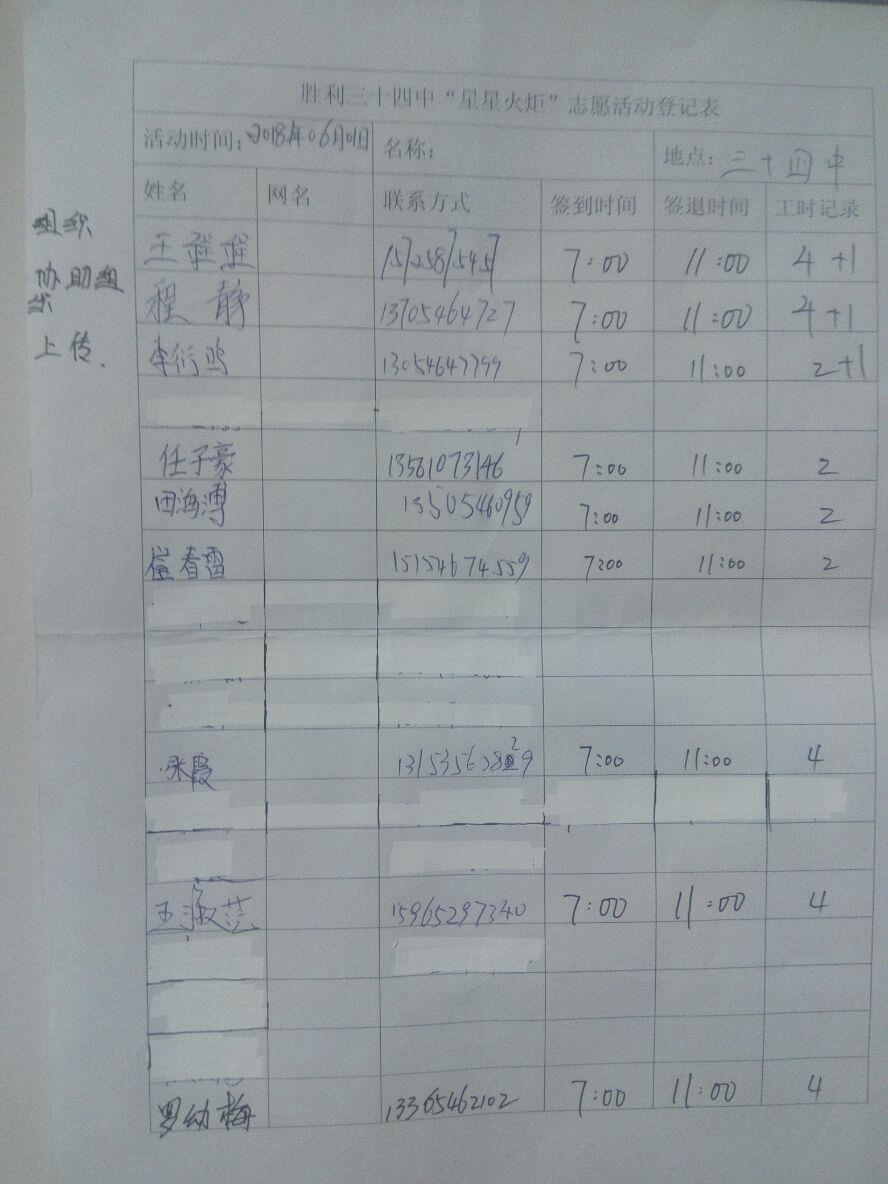 胜利三十四中“星星火炬”志愿活动登记表
活动时间：2018年06月01日 名称： 地点：三十四中
姓名 网名 联系方式 签到时间 签退时间 工时记录
组织 王程程 15725871545 7:00 11:00 4+1
协助组织 程静 13705464727 7:00 11:00 4+1
上传. 李衍 13054647799 7:00 11:00 2+1
任子豪 13561073146 7:00 11:00 2
田海溥 13505460959 7:00 11:00 2
崔春雷 15154674559 7:00 11:00 2
张霞 13153563829 7:00 11:00 4
王淑芸 15965297340 7:00 11:00 4
罗幼梅 13365462102 7:00 11:00 4